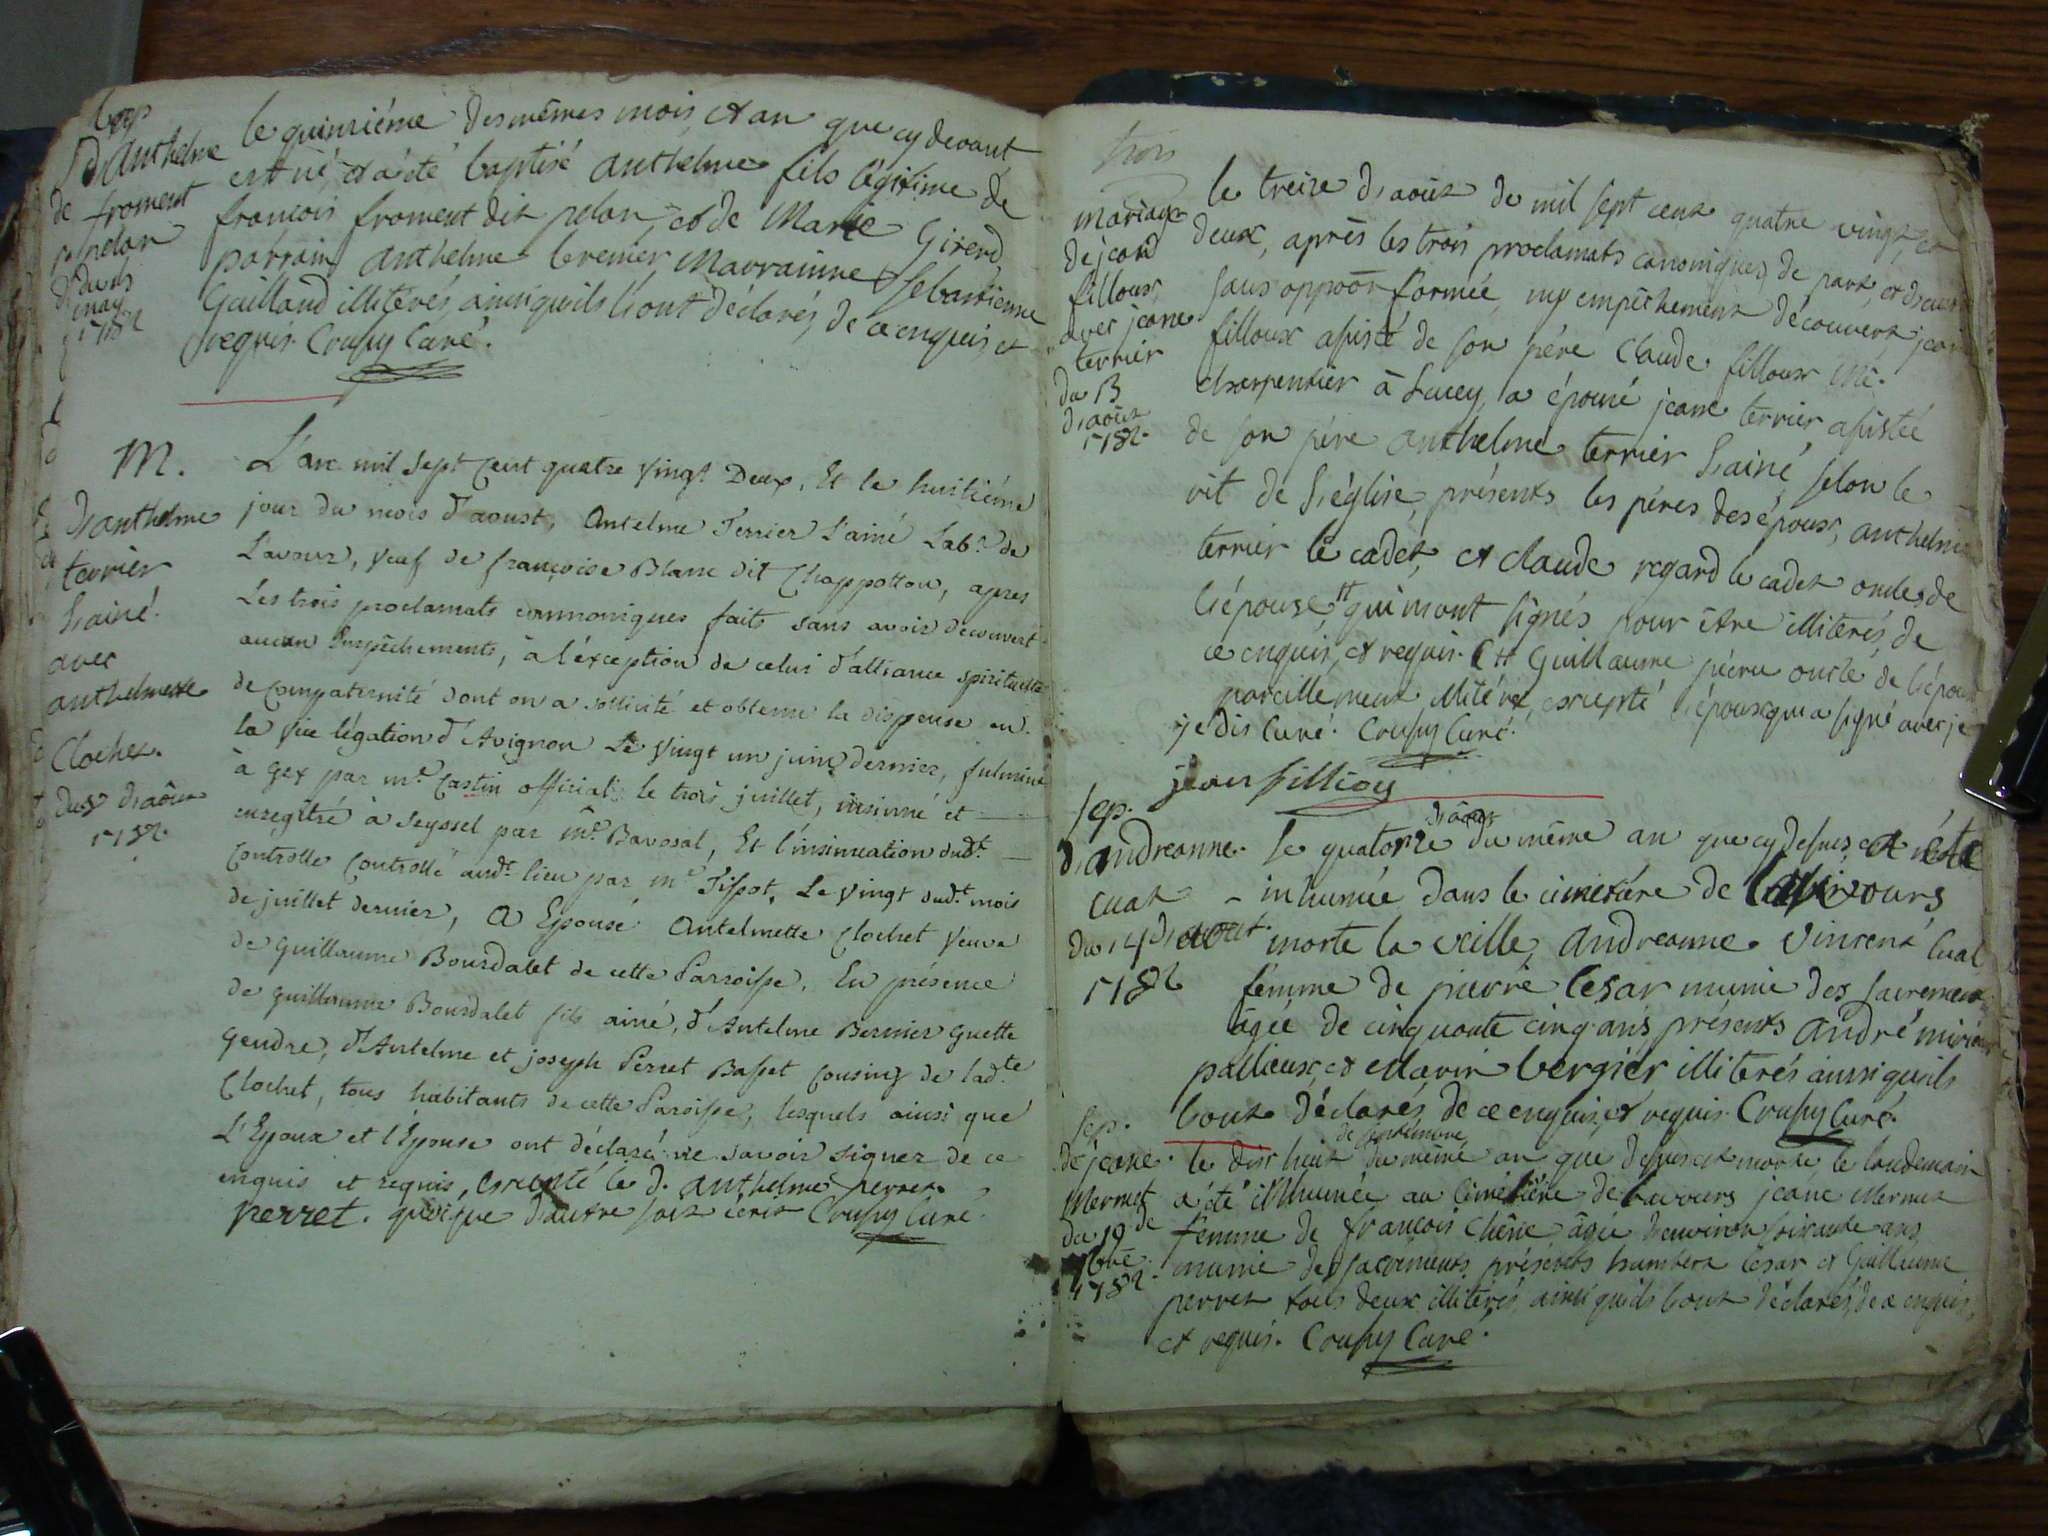 bap
d'anthelme
de froment
pelan
du 15
may
1782
le quinziéme des mêmes mois et an que cy devant
est né, et a été baptisé anthelme fils légitime de
francois froment dit pelan, et de Marie Girerd
parrain anthelme bernier marrainne Sebastienne
Gaillard illitérés, ainsi qu'ils l'ont déclarés, de ce enquis et
requis. Crussy Curé.
M.
d'anthelme
terrier
l'ainé.
avec
anthelmette
Clochet.
du 8 d'août
1782.
L'an mil sept Cent quatre vingt Deux, Et le huitiéme
jour du mois d'aoust, Antelme Terrier L'ainé Lab.r de
Lavour, veuf de françoise Blanc dit Chappotton, apres
Les trois proclamats cannoniques faits sans avoir découvert
aucun Empêchements, à l'éxception de celui d'alliance spirituelle
de Compaternité dont on a sollicité et obtenu la dispense en
la vice légation d'Avignon Le vingt un juin dernier, fulminé
à Gex par m.e Castin official le trois juillet, insinué et
enregîtré à Seyssel par m.e Bavosat, Et l'insinuation dud.t
Controlle Controllé aud.t lieu par m.e Tissot, Le vingt dud.t mois
de juillet dernier, a Epousé Antelmette Clochet veuve
de Guillaume Bourdalet de cette Parroisse, En présence
de Guillaume Bourdalet fils ainé, d'Antelme Bernier Guette
Gendre, d'Antelme et joseph Perret Basset Cousins de lad.te
Clochet, tous habitants de cette Paroisse, lesquels ainsi que
L'Epoux et l'Epouse ont déclaré ne savoir signer de ce
enquis et requis, excepté le d. anthelme perret
perret. quoique d'autre soit écrit Crussy Curé.
trois
mariage
de jean
filloux,
avec jeane
terrier
du 13
d'août
1782.
le treize d'août de mil sept cent quatre vingt, et
deux, après les trois proclamats canoniques, de part, et d'autre
sans oppoôn formée, ny empêchement découvert jean
filloux assisté de son pére Claude filloux me.
charpentier à Lucey, a épousé jeane terrier assistée
de son pére anthelme terrier l'ainé, selon le
rit de l'église, présents les péres des époux, anthelme
terrier le cadet, et claude regard le cadet oncles de
l'épouse, # qui n'ont signés pour être illiterés, de
ce enquis, et requis. # Guillaume pécru oncle de l'épouse
pareillement illitéré, excepté l'époux qui a signé avec je
je dis Curé. Crussy Curé.
jean fillioy
sep.
d'andreanne
cuat
du 14 d'aout
1782
d'août
le quatorze du même an que cy dessus a été
inhumée dans le cimetière de lavours
morte la veille, andreanne vincent Cuat
femme de pierre Cesar munie des sacrements
âgée de cinquante cinq ans, présents andré
pallieux, et Mavin bergier illiterés ainsi qu'ils
l'ont déclarés, de ce enquis, et requis. Crussy Curé.
sep.
de jeane
Mermet
du 19 de
7bre
1782.
de septembre
le dix huit du même an que dessus est morte, le landemain
a été inhumée au Cimetière de lavours jeane Mermet
femme de francois Chêne âgée d'environ soixante ans
munie des sacrements, présents humbert Cesar et Guillaume
perret tous deux illiterés, ainsi qu'ils l'ont déclarés, de ce enquis,
et requis. Crussy Curé.